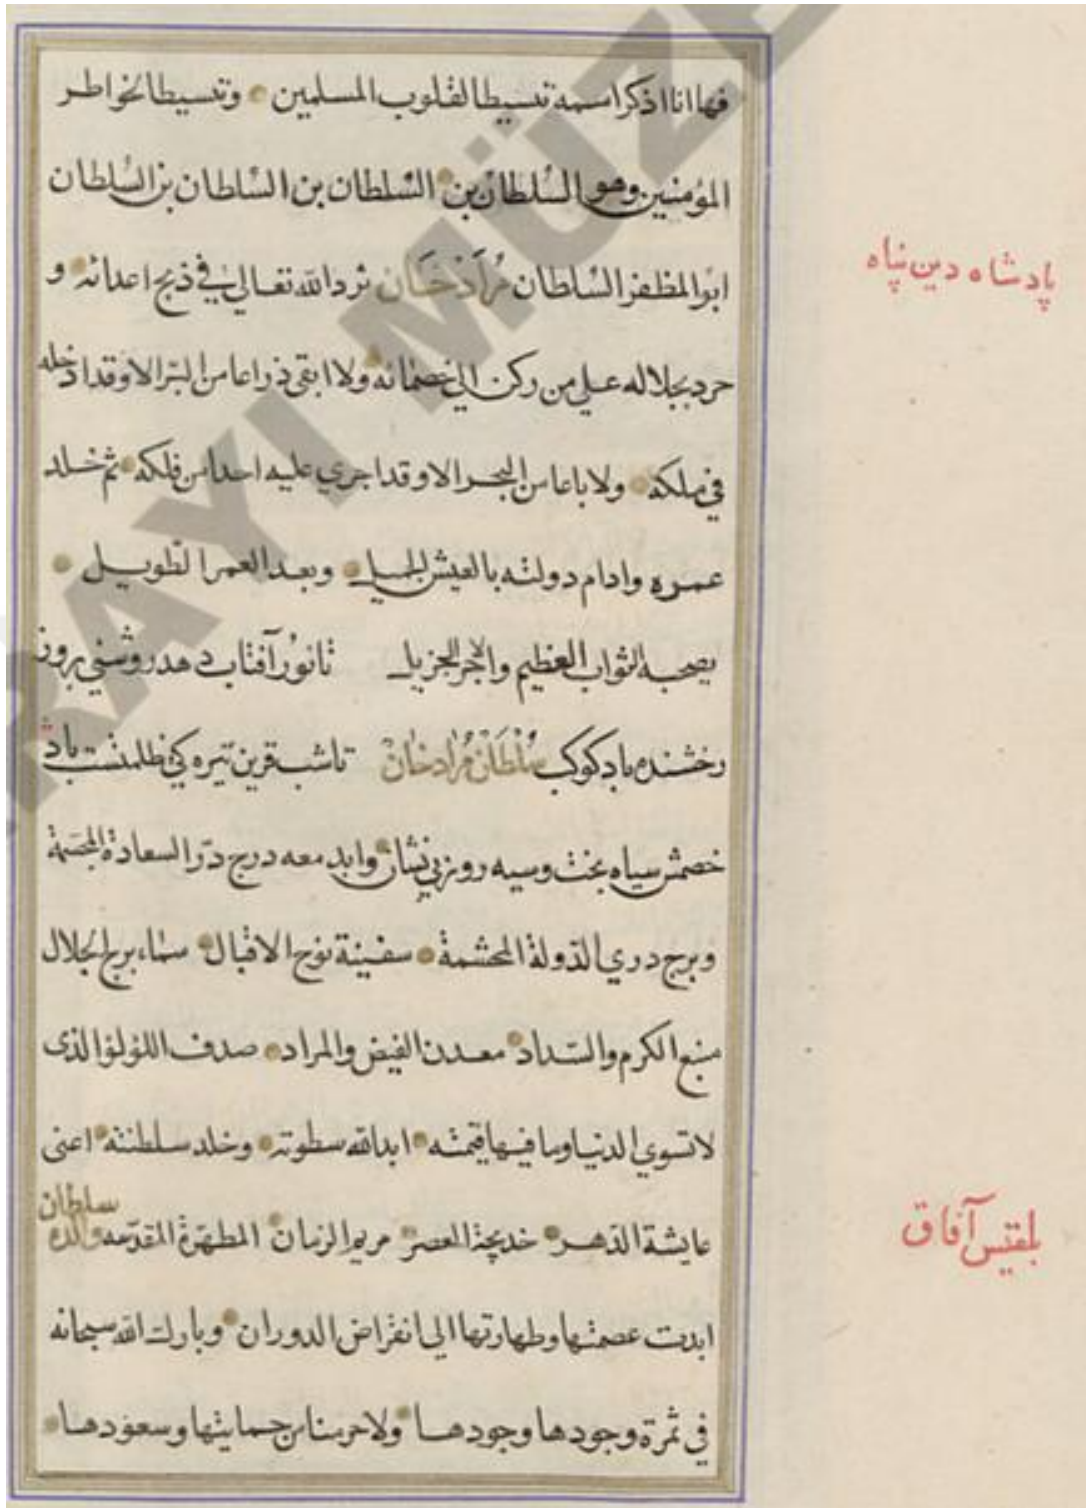 فها انا اذكر اسمه تبسيطا لقلوب المسلمين وتبسيطا لخواطر
المؤمنين وهو السلطان بن السلطان بن السلطان بن السلطان
ابو المظفر السلطان مراد خان نرد الله تعالى في ذبح اعدائه و
پادشاه دين پناه
حرد بجلاله على من ركن الى خصمائه ولا ابقى ذراعا من البر الا وقد ادخله
في ملكه ولا باعا من البحر الا وقد اجري عليه احدا من فلكه ثم خلد
عمره وادام دولته بالعيش الجميل وبعد العمر الطويل
يصحبه الثواب العظيم والاجر الجزيل تا نور آفتاب دهد روشني بروز
رخشنده باد كوكب سلطان مراد خان تا شب قرين تيره كي ظلمتست باد
خصمش سياه بخت وسيه روز بي نشان وابد معه درج در السعادة المجسمة
وبرج دري الدولة المحشمة سفينة نوح الاقبال سماء برج الجلال
منبع الكرم والسداد معدن الفيض والمراد صدف اللؤلؤ الذى
لا تسوي الدنيا وما فيها قيمته ابد الله سطوته وخلد سلطنته اعنى
عايشة الدهر خديجة العصر مريم الزمان المطهرة المقدسه والده سلطان
بلقيس آفاق
ابدت عصمتها وطهارتها الي انقراض الدوران وبارك الله سبحانه
في ثمرة وجودها وجودها ولا حرمنا من حمايتها وسعودها
RAYI MÜZE